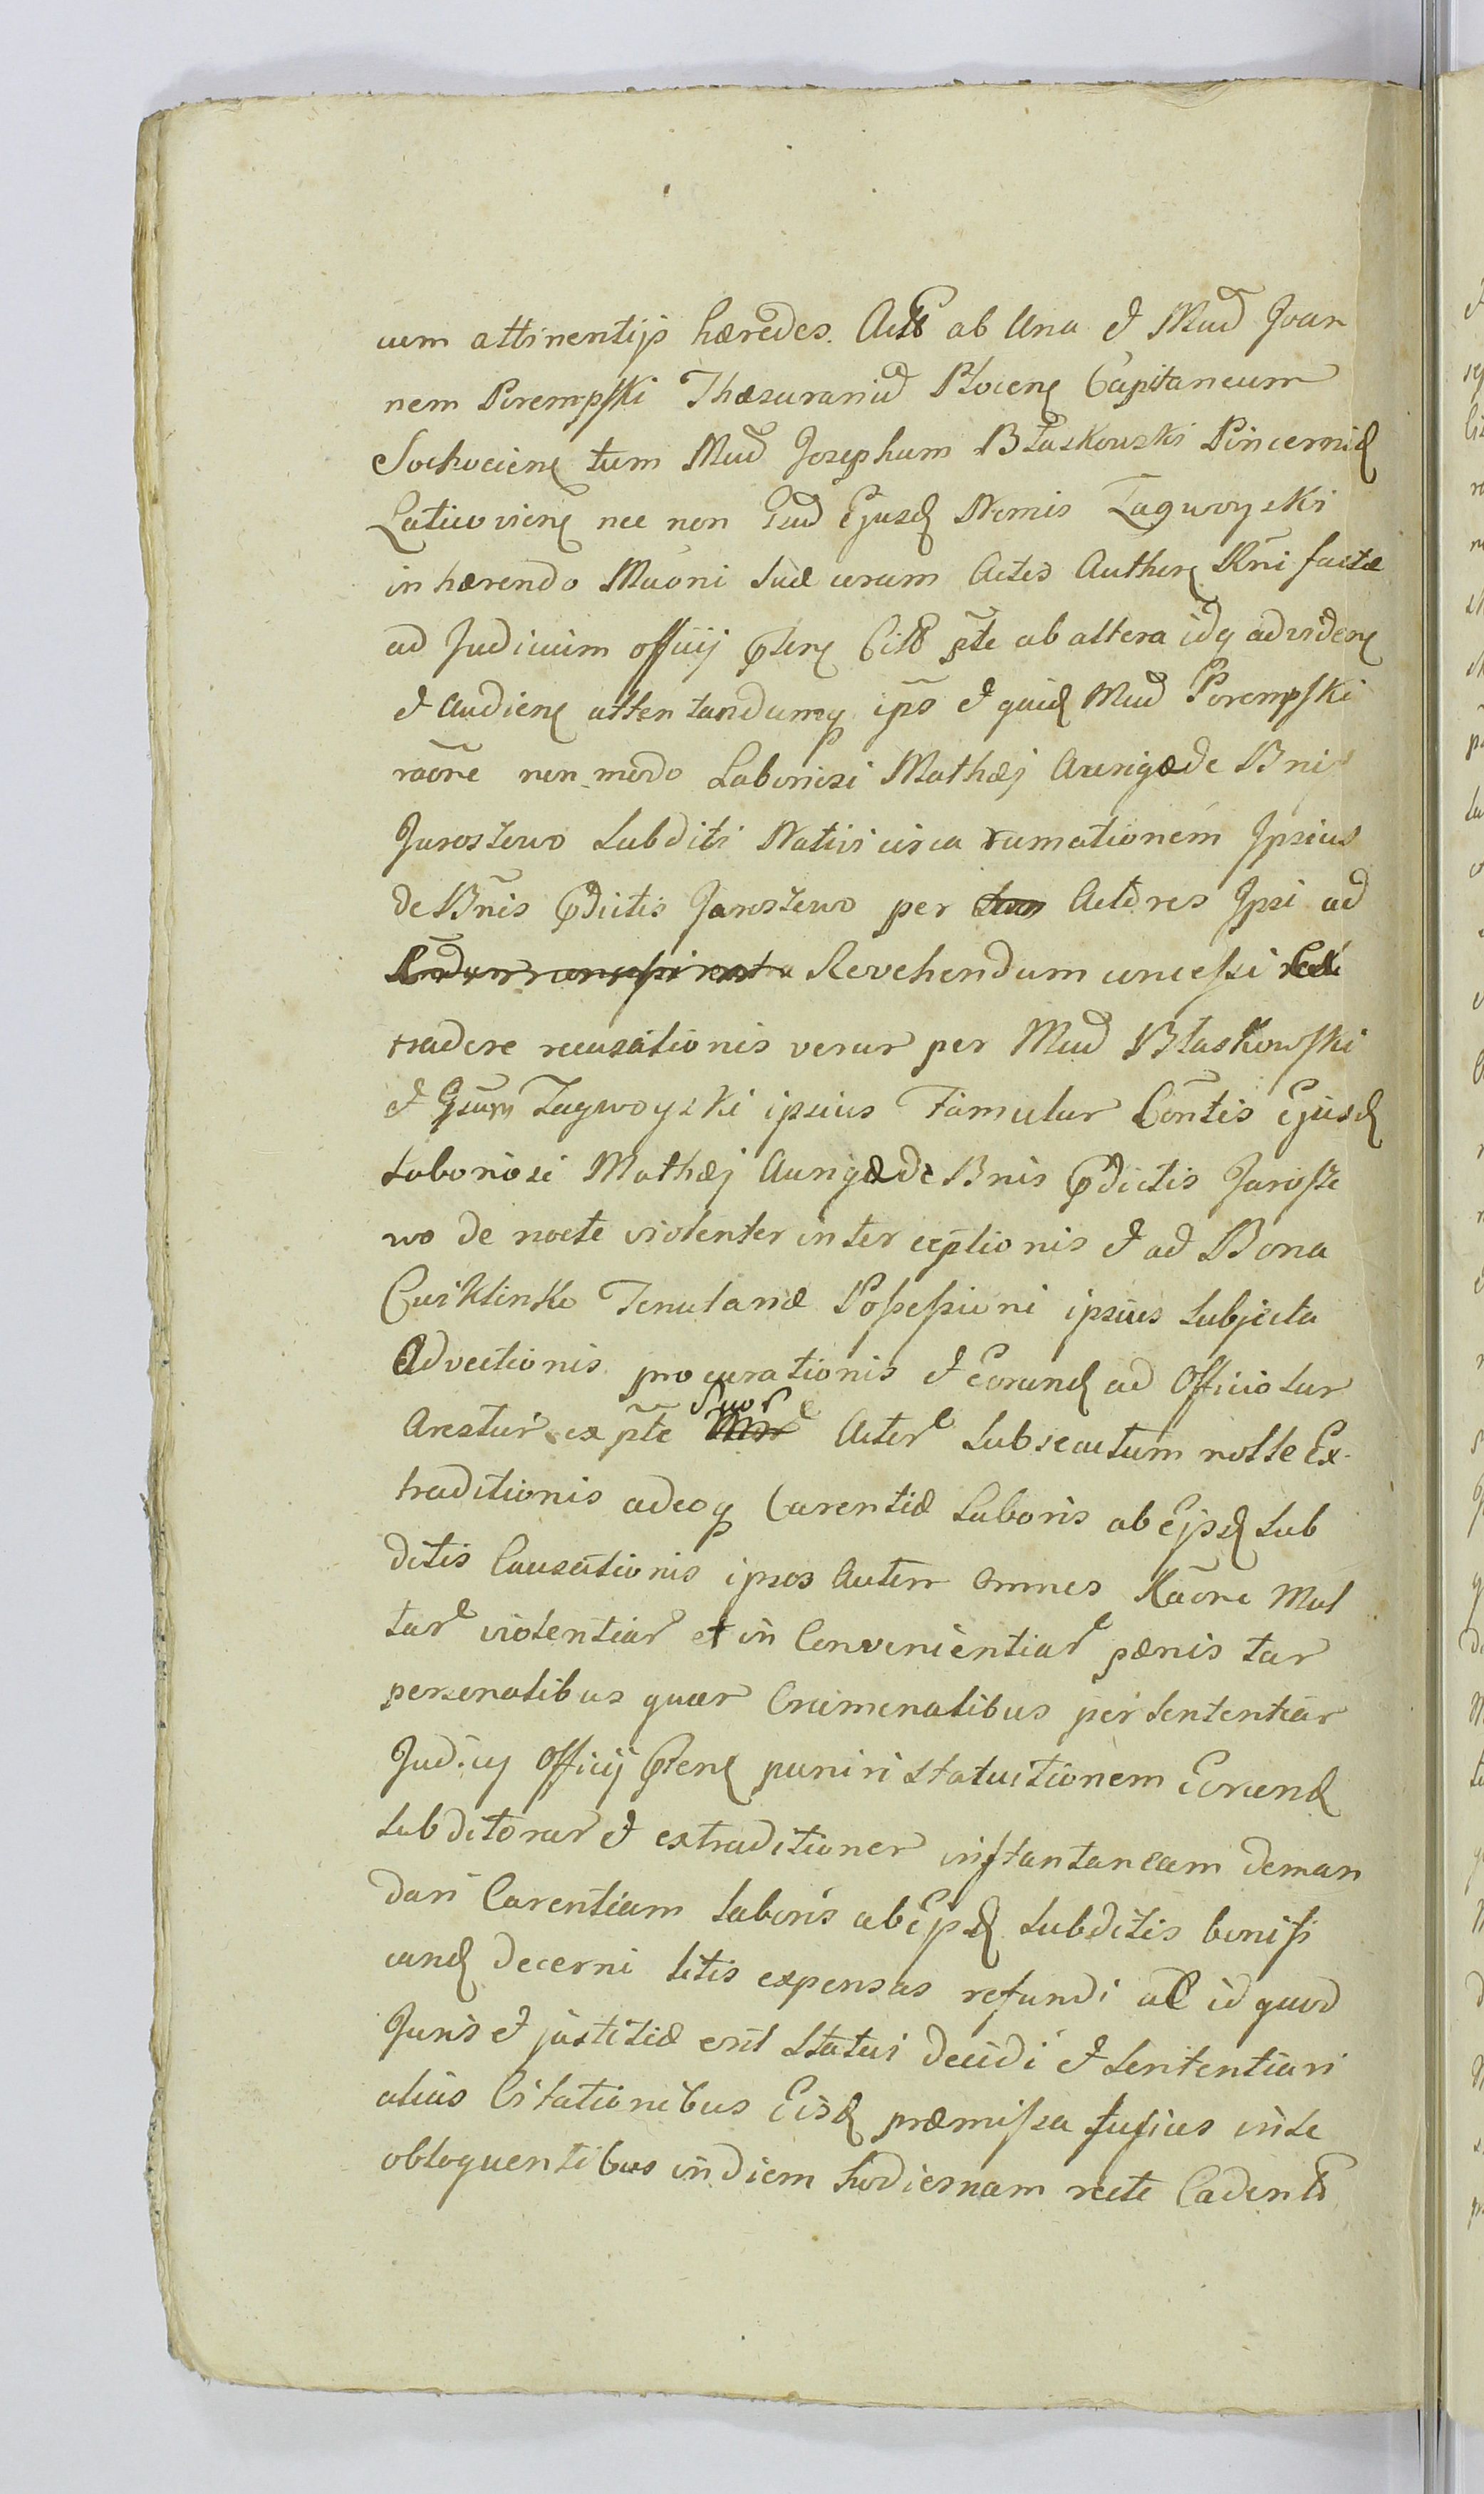 cum attinentijs hæredes. Acts ab Una et Mud Joan
nem Porempski Thæsurariud Plocens Capitaneum
Sochociens tum Mud Josephum Błaskowski Pincernid
Laticoviens nec non Gud Ejusd Nomis Zagwoyski
inhærendo Mãoni suæ coram Actis Authens Rñi factæ
ad Judicium officij Ptens Cits pte ab altera idq advidens
et Audiens attentandumq ips et quid Mud Porempski
raõne non modo Laboriosi Mathæj Aurigæ de Bnis
Jaroszewo Subditi Nativi circa fumationem Ipsius
de Bñis Pdictis Jaroszewo per Actores Ipsi ad
Revehendum concessi
tradere recusationis verum per Mud Błaskowski
et Gsum Zagwoyski ipsius Famulum Contis Ejusd
Laboriosi Mathæj Aurigæ de Bnis Pdictis Jarosze
wo de nocte violenter interceptionis et ad Bona
Cwiklinko Tenutariæ Possessioni ipsius Subjecta
Advectionis procurationis et Eorund ad Officiosum
Arestum ex pte Suor Actor Subsecutum nolle Ex-
traditionis adeoq Carentiæ Laboris ab Ejsd Sub
ditis Causationis ipsos Autem Omnes Raõne Mul
tar violentiar et in Convenientiar pænis tam
personalibus quam Criminalibus per Sententiam
Judicij Officij Ptens puniri Statuitionem Eorund
Subditorum et extraditionem instantaneam deman
dari Carentiam Laboris ab Ejsd Subditis bonifi
cand decerni litis expensas refundi ac id quod
Juris et justitiæ erit Statui decidi et Sententiari
alias Citationibus Eisd præmissa fusius in se
obloquentibus in diem hodiernam recte Cadents